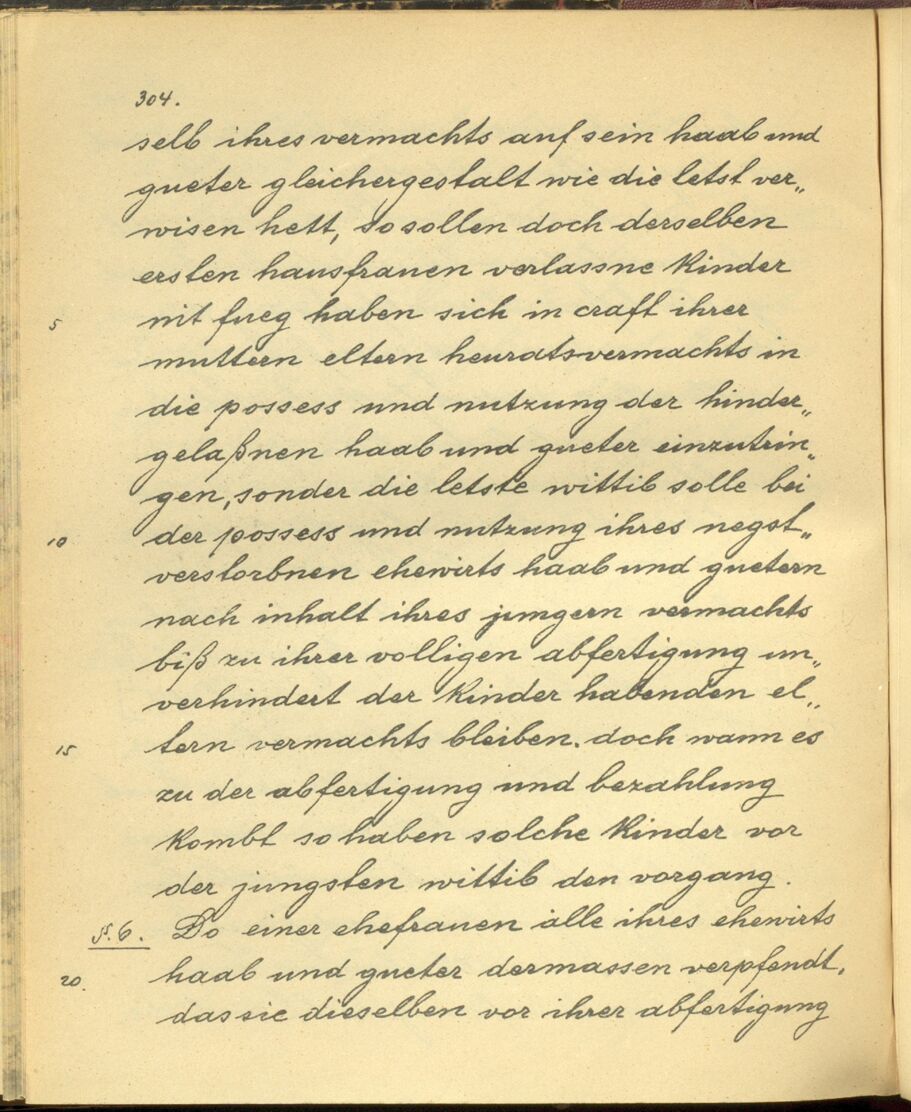 304.
selb ihres vermachts auf sein haab und
gueter gleichergestalt wie die letst ver„
wisen hett, so sollen doch derselben
ersten hausfrauen verlassne Kinder
5 nit fueg haben sich in craft ihrer
muttern eltern heuratsvermachts in
die possess und nutzung der hinder„
gelaßnen haab und gueter einzutrin„
gen, sonder die letste wittib solle bei
10 der possess und nutzung ihres negst„
verstorbnen ehewirts haab und guetern
nach inhalt ihres jungern vermachts
biß zu ihrer volligen abfertigung un„
verhindert der Kinder habenden el„
15 tern vermachts bleiben. doch wann es
zu der abfertigung und bezahlung
Kombt so haben solche Kinder vor
der jungsten wittib den vorgang.
§. 6. Do einer ehefrauen alle ihres ehewirts
20. haab und gueter dermassen verpfendt,
das sie dieselben vor ihrer abfertigung